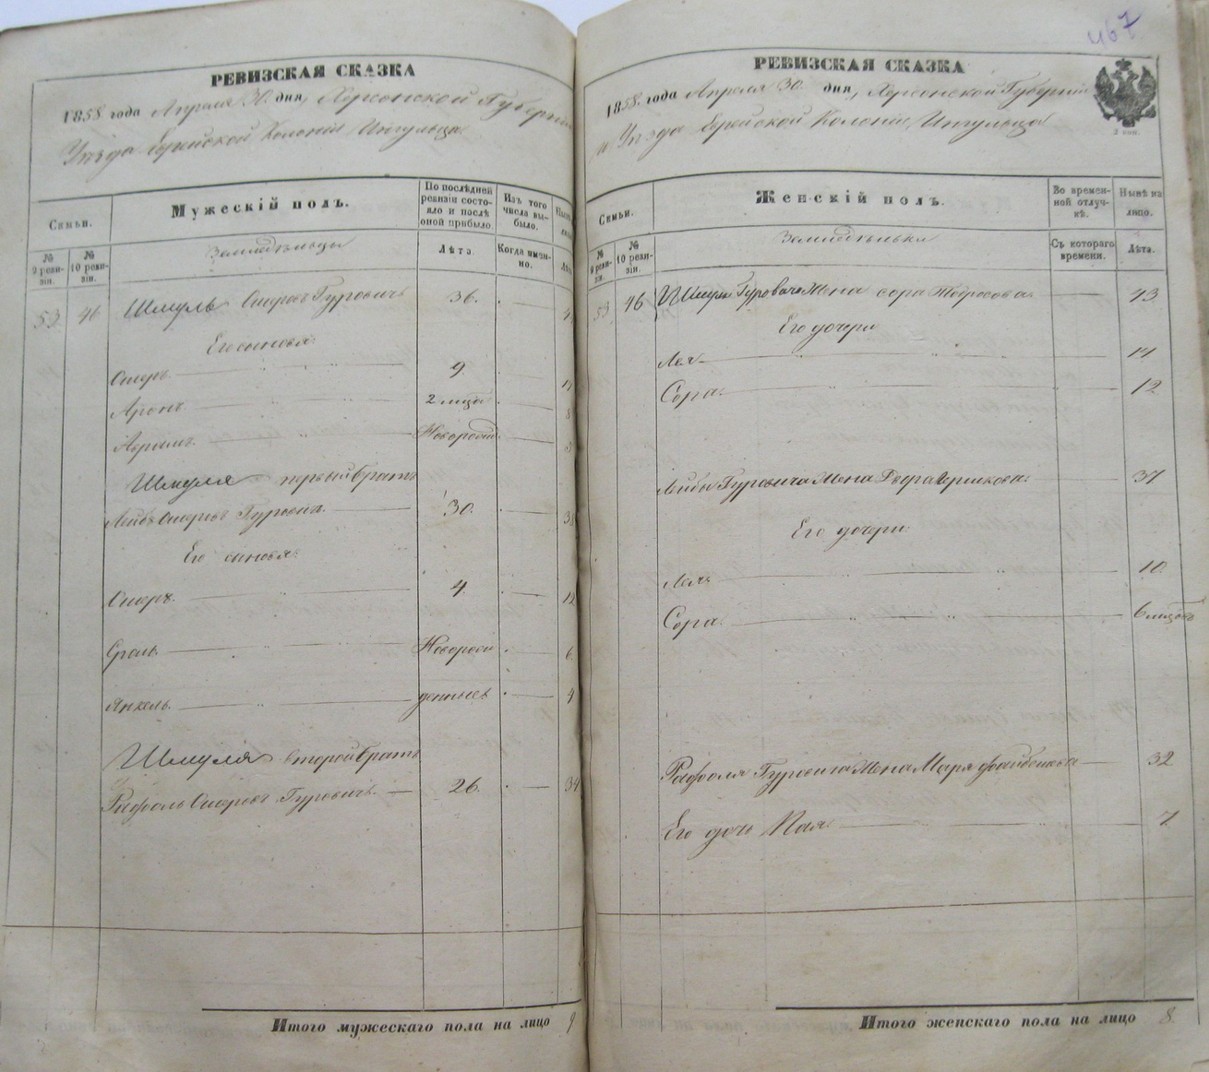 РЕВИЗСКАЯ СКАЗКА
1858 года Апреля 30 дня, Херсонской Губерніи
Уѣзда Еврейской Колоніи Ингульца
Семьи.
Мужескій полъ.
По послѣдней ревизіи состояло и послѣ оной прибыло.
Изъ того числа выбыло.
№ 9 ревизіи.
№ 10 ревизіи.
Земледѣльцы
Лѣта.
Когда именно.
53 46 Шмуль Гуровичъ 36.
Его сыновья:
9.
Аронъ 2 мѣца
Аврумъ Новорожд
Шмуля первый братъ
Лейбъ 30.
Его сыновья:
4.
Сроль Новорож 6
Янкель денныхъ 4
Шмуля второй братъ
Рафоль Гуровичъ 26. 34
Итого мужескаго пола на лицо 9
467
РЕВИЗСКАЯ СКАЗКА
1858 года Апреля 30 дня, Херсонской Губерніи
и Уѣзда Еврейской Колоніи Ингульца
2 коп.
Семьи.
Женскій полъ.
Во временной отлучкѣ.
Нынѣ на лицо.
№ 9 ревизіи.
№ 10 ревизіи.
Земледѣльки
Съ котораго времени.
Лѣта.
53 46 Шмуля Гуровича Жена Сора 43
Его дочери
Лея 14
Сора 12
Лейбы Гуровича Жена 37
Его дочери
Лея 10
Сора 6 мѣцовъ
Рафоля Гуровича Жена Маря 32
Его дочь 7
Итого женскаго пола на лицо 8.